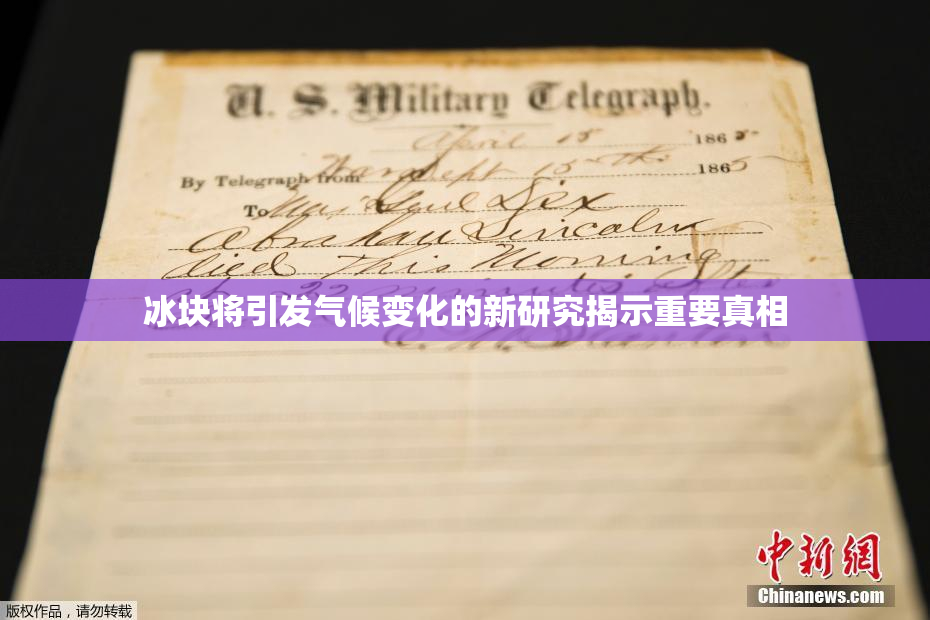 U. S. Military Telegraph.
April 15 1865
By Telegraph from War Dept 15th 1865
To Maj Genl Dix
Abraham Lincoln
died this morning
22 minutes after
冰块将引发气候变化的新研究揭示重要真相
E. M. Stanton
中新網
Chinanews.com
版权作品，请勿转载